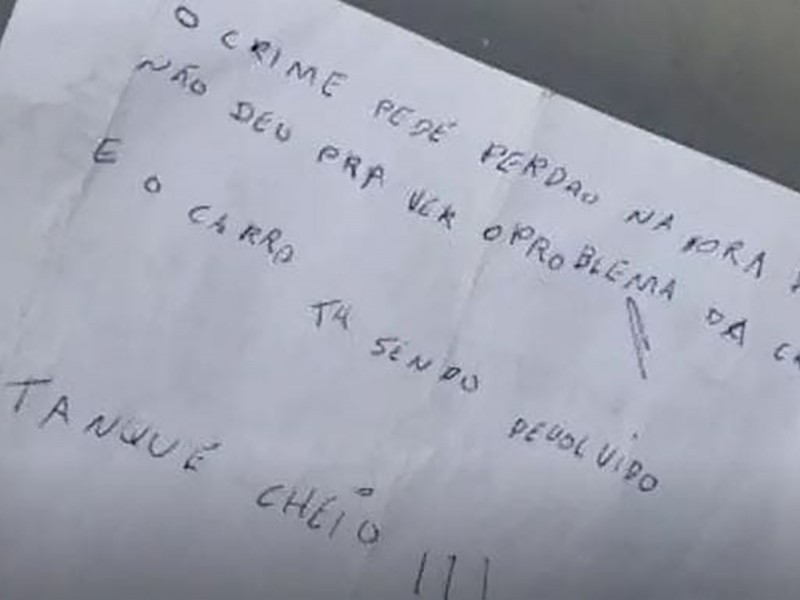 O CRIME PEDE PERDAO NA HORA
NÃO DEU PRA VER O PROBLEMA DA
E O CARRO TA SENDO DEVOLVIDO
TANQUE CHEIO !!!